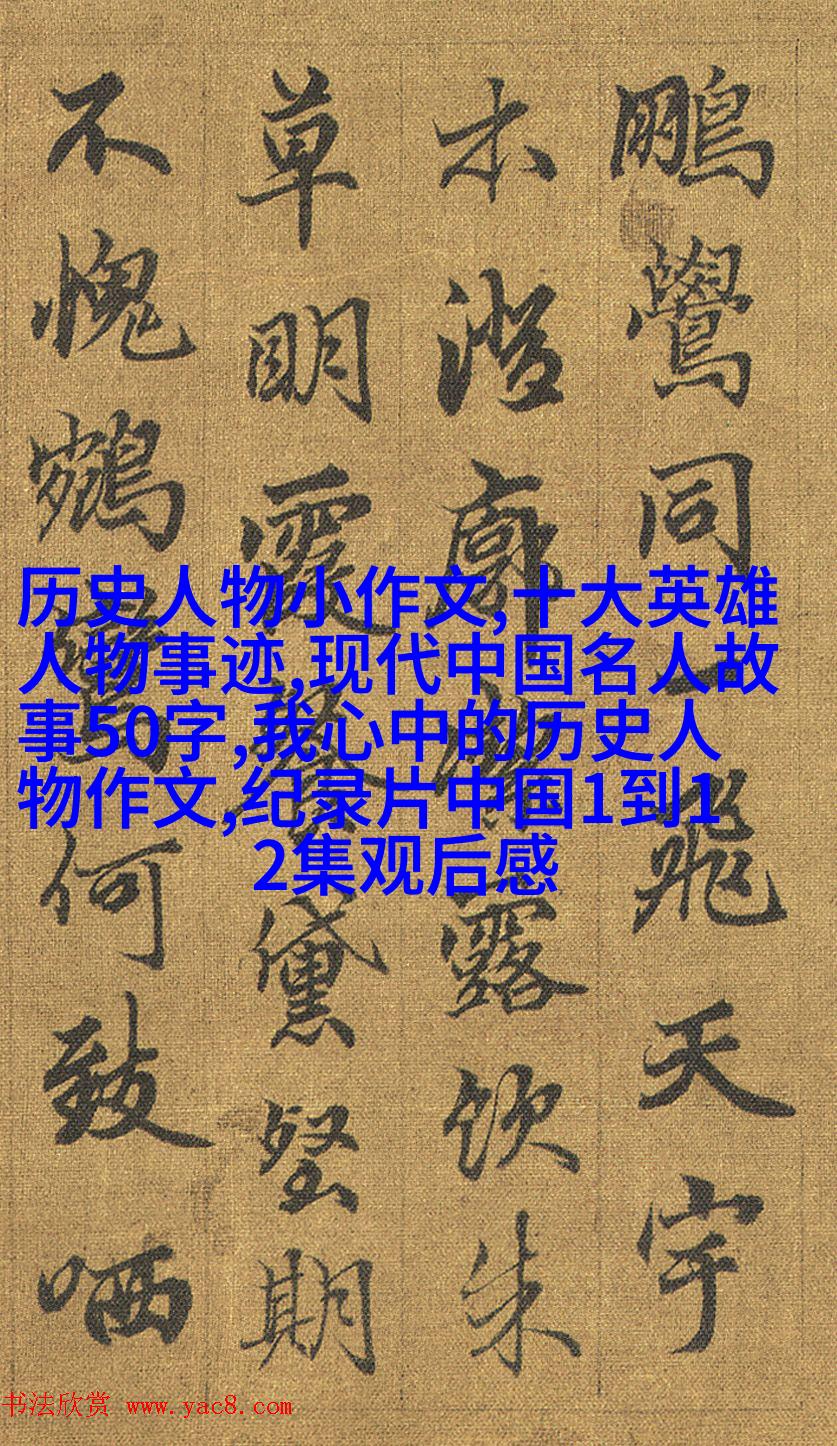 鵬鷽同一飛天宇
廓露飲朱
草明霞黛堅期
不愧何致哂
历史人物小作文,十大英雄
人物事迹,现代中国名人故
事50字,我心中的历史人
物作文,纪录片中国1到1
2集观后感
书法欣赏 www.yac8.com